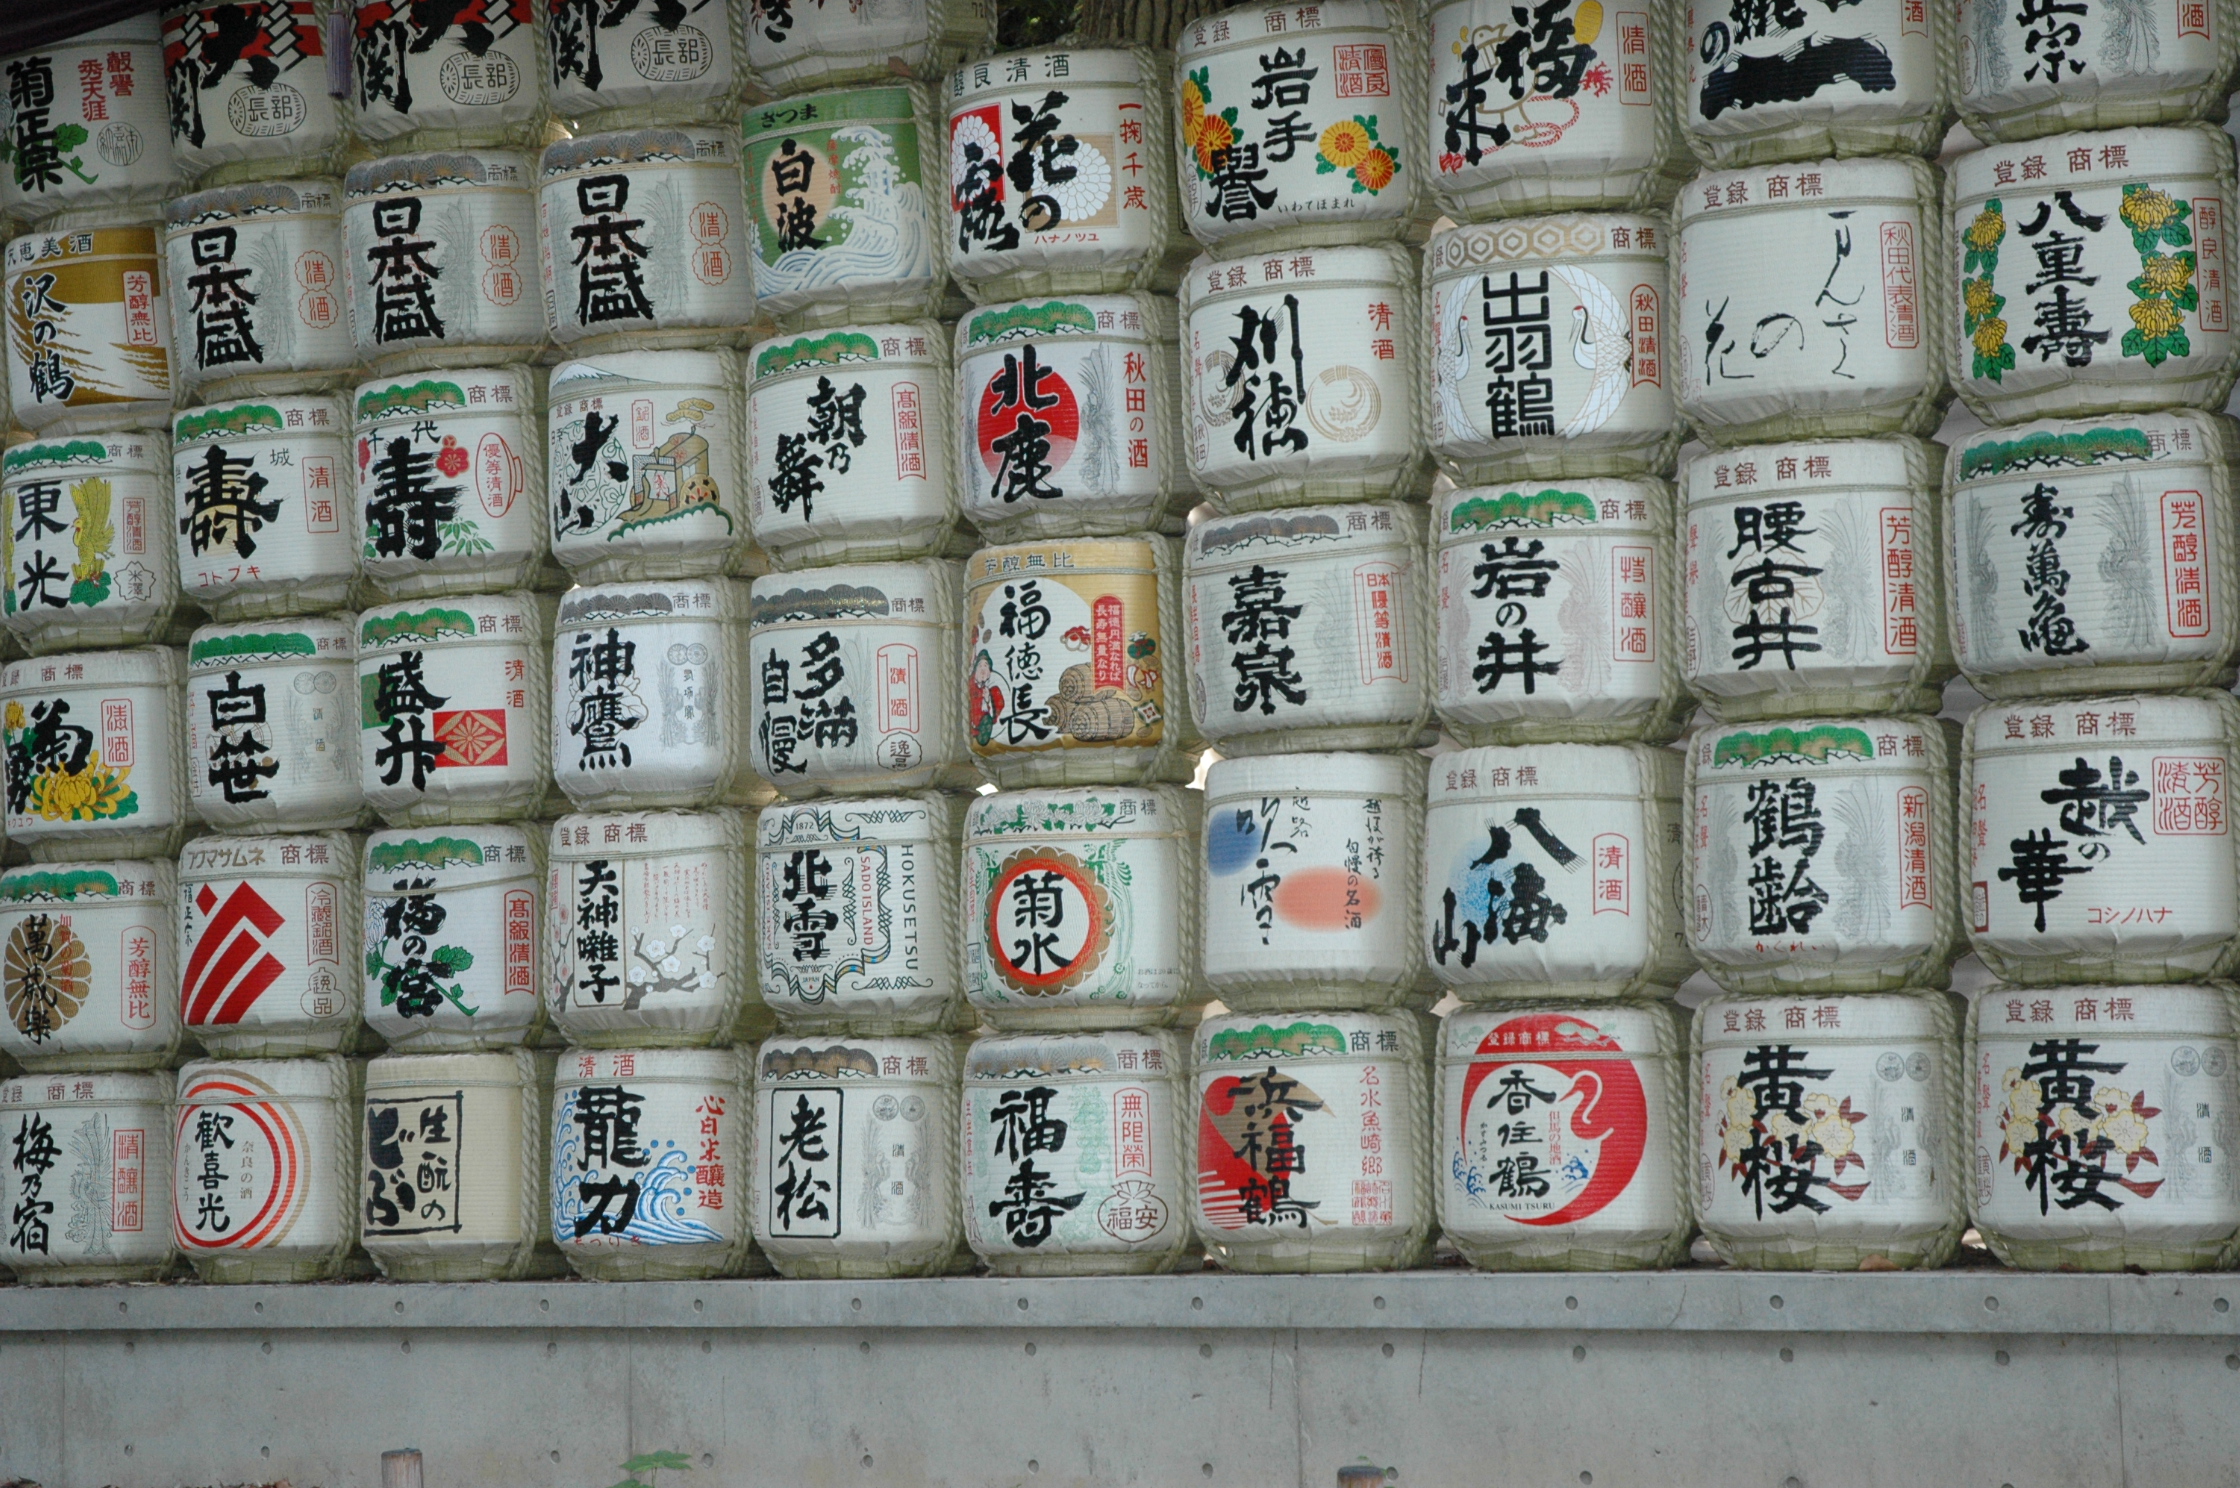 菊正宗
観誉
秀天涯
大関
長部
大関
長部
大関
長部
良清酒
花の露
一掬千歳
ハナノツユ
登録 商標
岩手誉
優良清酒
いわてほまれ
福
清酒
正宗
元恵美酒
沢の鶴
芳醇無比
商標
日本盛
清酒
商標
日本盛
清酒
商標
日本盛
清酒
さつま
白波
薩摩焼酎
商標
北鹿
秋田の酒
登録 商標
刈穂
清酒
商標
出羽鶴
秋田清酒
登録 商標
まんさくの花
秋田代表清酒
登録 商標
八重寿
醇良清酒
商標
東光
芳醇清酒
米澤
商標
寿
城
清酒
コトブキ
商標
千代寿
優等清酒
登録 商標
大山
銘酒
商標
朝乃舞
高級清酒
芳醇無比
福徳長
福徳円満なれば
長寿無量なり
商標
嘉泉
日本優等清酒
商標
岩の井
特醸酒
登録 商標
腰古井
芳醇清酒
商標
寿萬亀
芳醇清酒
登録 商標
菊勇
清酒
商標
白笹
清酒
商標
盛升
清酒
商標
神鷹
商標
多満自慢
清酒
逸品
商標
菊水
越路吹雪
越後が誇る
自慢の名酒
登録 商標
八海山
清酒
商標
鶴齢
新潟清酒
かくれい
登録 商標
越の華
芳醇清酒
コシノハナ
商標
萬歳楽
加賀の菊酒
芳醇無比
フクマサムネ 商標
福正宗
冷蔵銘酒
逸品
商標
福の宮
高級清酒
登録 商標
天神囃子
1872
北雪
SADO ISLAND
HOKUSETSU
JAPAN
商標
福寿
無限榮
福安
商標
浜福鶴
名水魚崎郷
登録商標
香住鶴
かすみつる
但馬の地酒
KASUMI TSURU
登録 商標
黄桜
清酒
登録 商標
黄桜
清酒
登録 商標
梅乃宿
清醸酒
歓喜光
かんきこう
奈良の酒
生酛のどぶ
清酒
龍力
心白米醸造
商標
老松
清酒